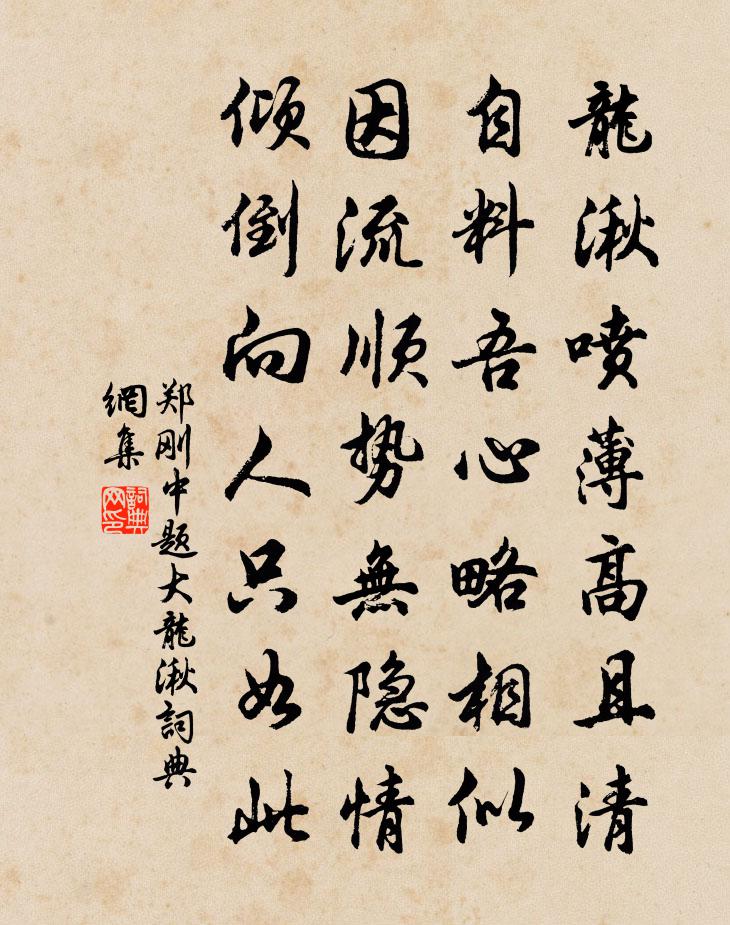 龍湫噴薄高且清
自料吾心略相似
因流順勢無隐情
傾倒向人只如此
郑刚中题大龍湫詞典
網集
詞典
网印